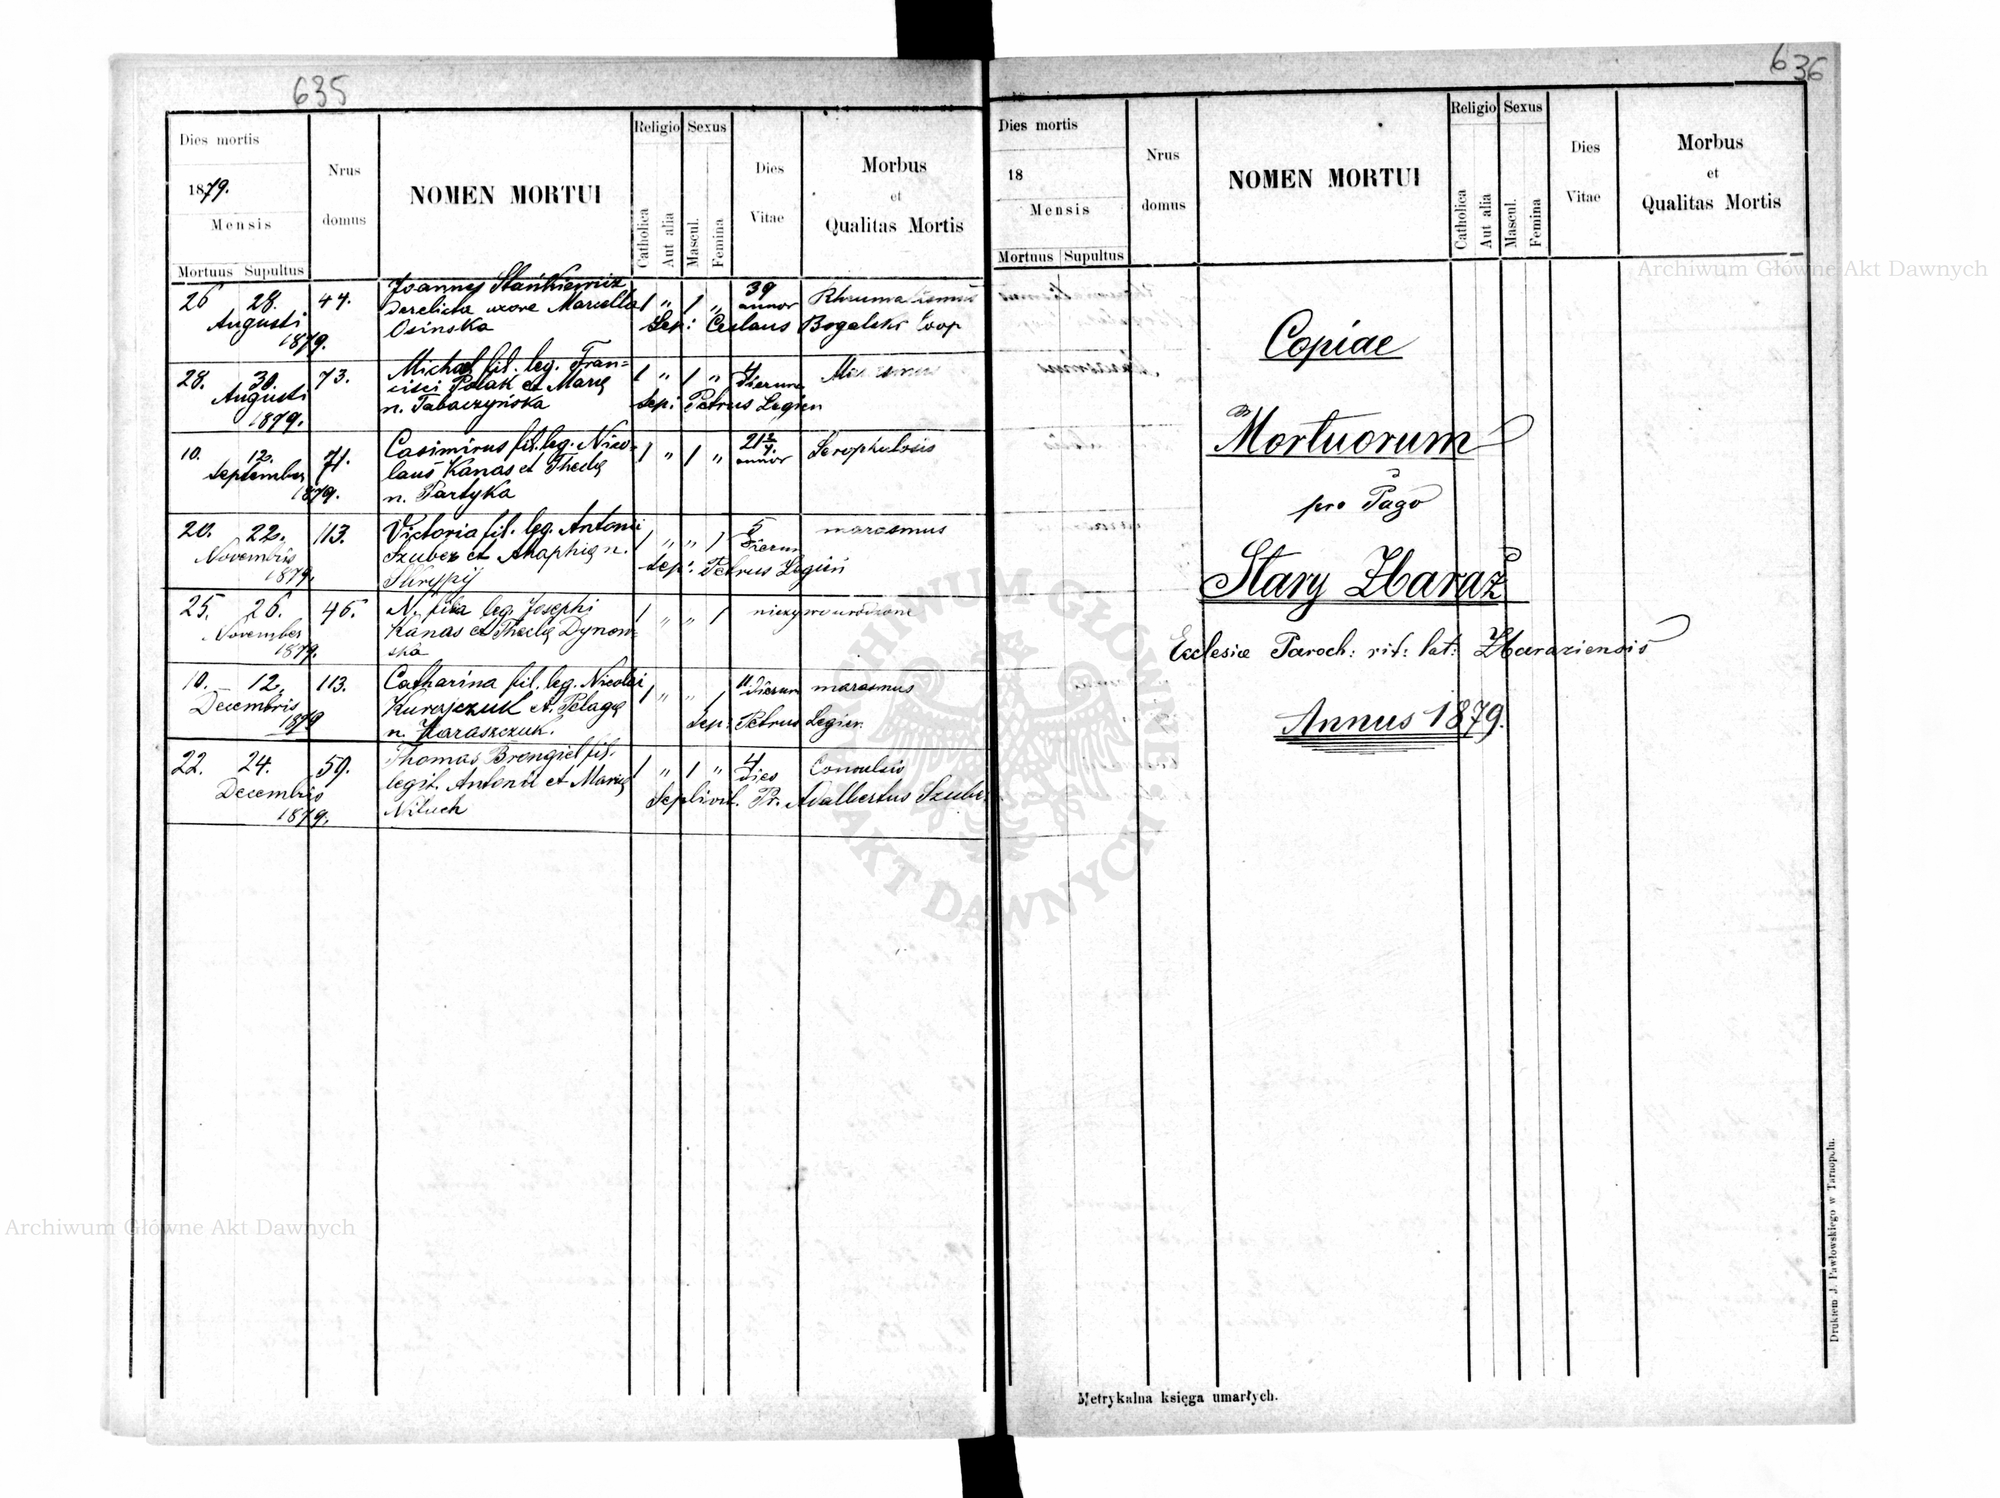 635
Dies mortis
1879.
Mensis
Mortuus Supultus
Nrus
domus
NOMEN MORTUI
Religio
Catholica
Aut alia
Sexus
Mascul.
Femina
Dies
Vitae
Morbus
et
Qualitas Mortis
26 28. Augusti 1879.
44.
Joannes Stankiewicz
derelicta uxore Marcella
Osinska
1 " 1 "
39 annor
Sep: Ceslaus Bogalski Coop
28. 30. Augusti 1879.
73.
Michael fil. leg. Fran-
cisci Polak et Marię
n. Tabaczyńska
1 " 1 "
4 dierum
Sep: Petrus Legien
10. 12. September 1879.
71.
Casimirus fil. leg. Nico-
laus Kanas et Theclę
n. Partyka
1 " 1 "
annor
Scrophulosis
20. 22. Novembris 1879.
113.
Victoria fil. leg. Antonii
Szuber et Ahaphię n.
Skrypij
1 " " 1
5 dierum
marasmus
Sep: Petrus Legień
25. 26. November 1879.
46.
N. filia leg. Josephi
Kanas et Theclę Dynow-
ska
1 " " 1
nieżywo urodzone
10. 12. Decembris 1879
113.
Catharina fil. leg. Nicolai
et Pelagię
n. Haraszczuk.
1 " " 1
11 dierum
marasmus
Sep: Petrus Legien
22. 24. Decembris 1879.
59.
Thomas Brengiel fil.
legit. Antonii et Marię
Niluch
1 " 1 "
4 dies
Convulsio
Pr. Adalbertus Szuber
636
Dies mortis
18
Mensis
Mortuus Supultus
Nrus
domus
NOMEN MORTUI
Religio
Catholica
Aut alia
Sexus
Mascul.
Femina
Dies
Vitae
Morbus
et
Qualitas Mortis
Copiae
Mortuorum
pro Pago
Stary Zbaraż
Ecclesiæ Paroch: rit: lat: Zbaraziensis
Annus 1879.
Metrykalna księga umarłych.
Drukiem J. Pawłowskiego w Tarnopolu.
Archiwum Główne Akt Dawnych
Archiwum Główne Akt Dawnych
ARCHIWUM GŁÓWNE AKT DAWNYCH